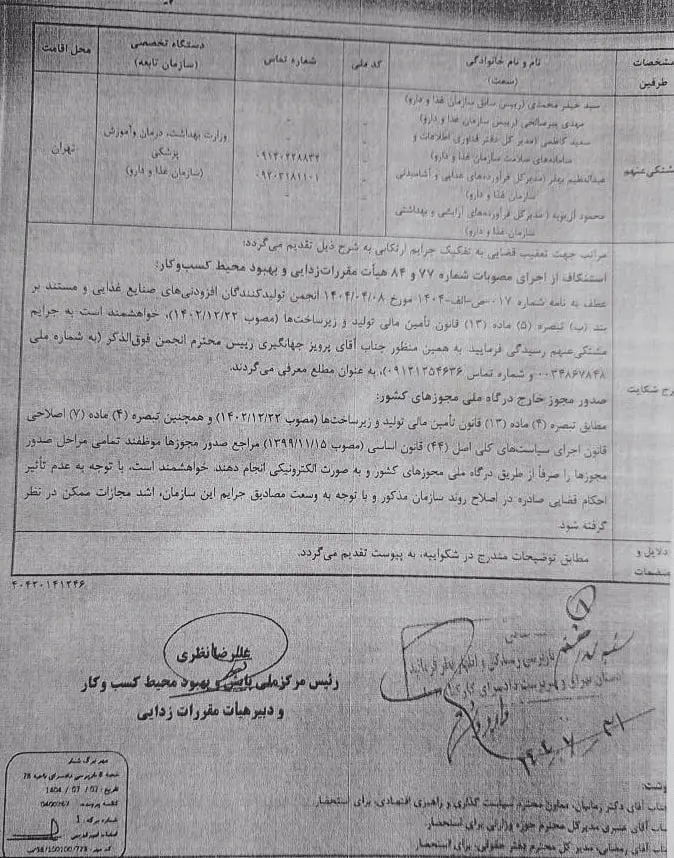 مشخصات طرفین
نام و نام خانوادگی (سمت)
کد ملی
شماره تماس
دستگاه تخصصی (سازمان تابعه)
محل اقامت
مشتکی‌عنهم
سید حیدر محمدی (رییس سابق سازمان غذا و دارو)
مهدی پیرصالحی (رییس سازمان غذا و دارو)
سعید کاظمی (مدیر کل دفتر فناوری اطلاعات و
سامانه‌های سلامت سازمان غذا و دارو)
عبدالعظیم بهفر (مدیرکل فرآورده‌های غذایی و آشامیدنی
سازمان غذا و دارو)
محمود آل‌بویه (مدیرکل فرآورده‌های آرایشی و بهداشتی
سازمان غذا و دارو)
وزارت بهداشت، درمان وآموزش
پزشکی
(سازمان غذا و دارو)
تهران
مراتب جهت تعقیب قضایی به تفکیک جرایم ارتکابی به شرح ذیل تقدیم می‌گردد:
استنکاف از اجرای مصوبات شماره ۷۷ و ۸۴ هیأت مقررات‌زدایی و بهبود محیط کسب‌وکار:
عطف به نامه شماره ۰۱۷-ص-الف-۱۴۰۴ مورخ ۱۴۰۴/۰۴/۰۸ انجمن تولیدکنندگان افزودنی‌های صنایع غذایی و مستند بر
بند (ب) تبصره (۵) ماده (۱۳) قانون تأمین مالی تولید و زیرساخت‌ها (مصوب ۱۴۰۲/۱۲/۲۲)، خواهشمند است به جرایم
مشتکی‌عنهم رسیدگی فرمایید. به همین منظور جناب آقای پرویز جهانگیری رییس محترم انجمن فوق‌الذکر (به شماره ملی
۰۰۳۴۸۶۷۸۴۸ و شماره تماس ۰۹۱۳۱۲۵۴۶۳۶)، به عنوان مطلع معرفی می‌گردند.
شرح شکایت
صدور مجوز خارج درگاه ملی مجوزهای کشور:
مطابق تبصره (۴) ماده (۱۳) قانون تأمین مالی تولید و زیرساخت‌ها (مصوب ۱۴۰۲/۱۲/۲۲) و همچنین تبصره (۴) ماده (۷) اصلاحی
قانون اجرای سیاست‌های کلی اصل (۴۴) قانون اساسی (مصوب ۱۳۹۹/۱۱/۱۵) مراجع صدور مجوزها موظفند تمامی مراحل صدور
مجوزها را صرفاً از طریق درگاه ملی مجوزهای کشور و به صورت الکترونیکی انجام دهند. خواهشمند است، با توجه به عدم تأثیر
احکام قضایی صادره در اصلاح روند سازمان مذکور و با توجه به وسعت مصادیق جرایم این سازمان، اشد مجازات ممکن در نظر
گرفته شود.
دلایل و منضمات
مطابق توضیحات مندرج در شکواییه، به پیوست تقدیم می‌گردد.
۴۰۴۲۰۱۴۱۲۴۶
علیرضا نظری
رئیس مرکز ملی پایش و بهبود محیط کسب و کار
و دبیر هیأت مقررات زدایی
بازپرسی رسیدگی و اظهار نظر فرمائید
مهر برگ شمار
شعبه 8 بازپرسی دادسرای ناحیه 28
تاریخ: 07/ 07/ 1404
کلاسه پرونده:
شماره برگه: 1
جناب آقای دکتر زمانیان، معاون محترم سیاست گذاری و راهبری اقتصادی، برای استحضار
جناب آقای عنبری مدیرکل محترم حوزه وزارتی برای استحضار.
جناب آقای رمضانی، مدیر کل محترم دفتر حقوقی، برای استحضار